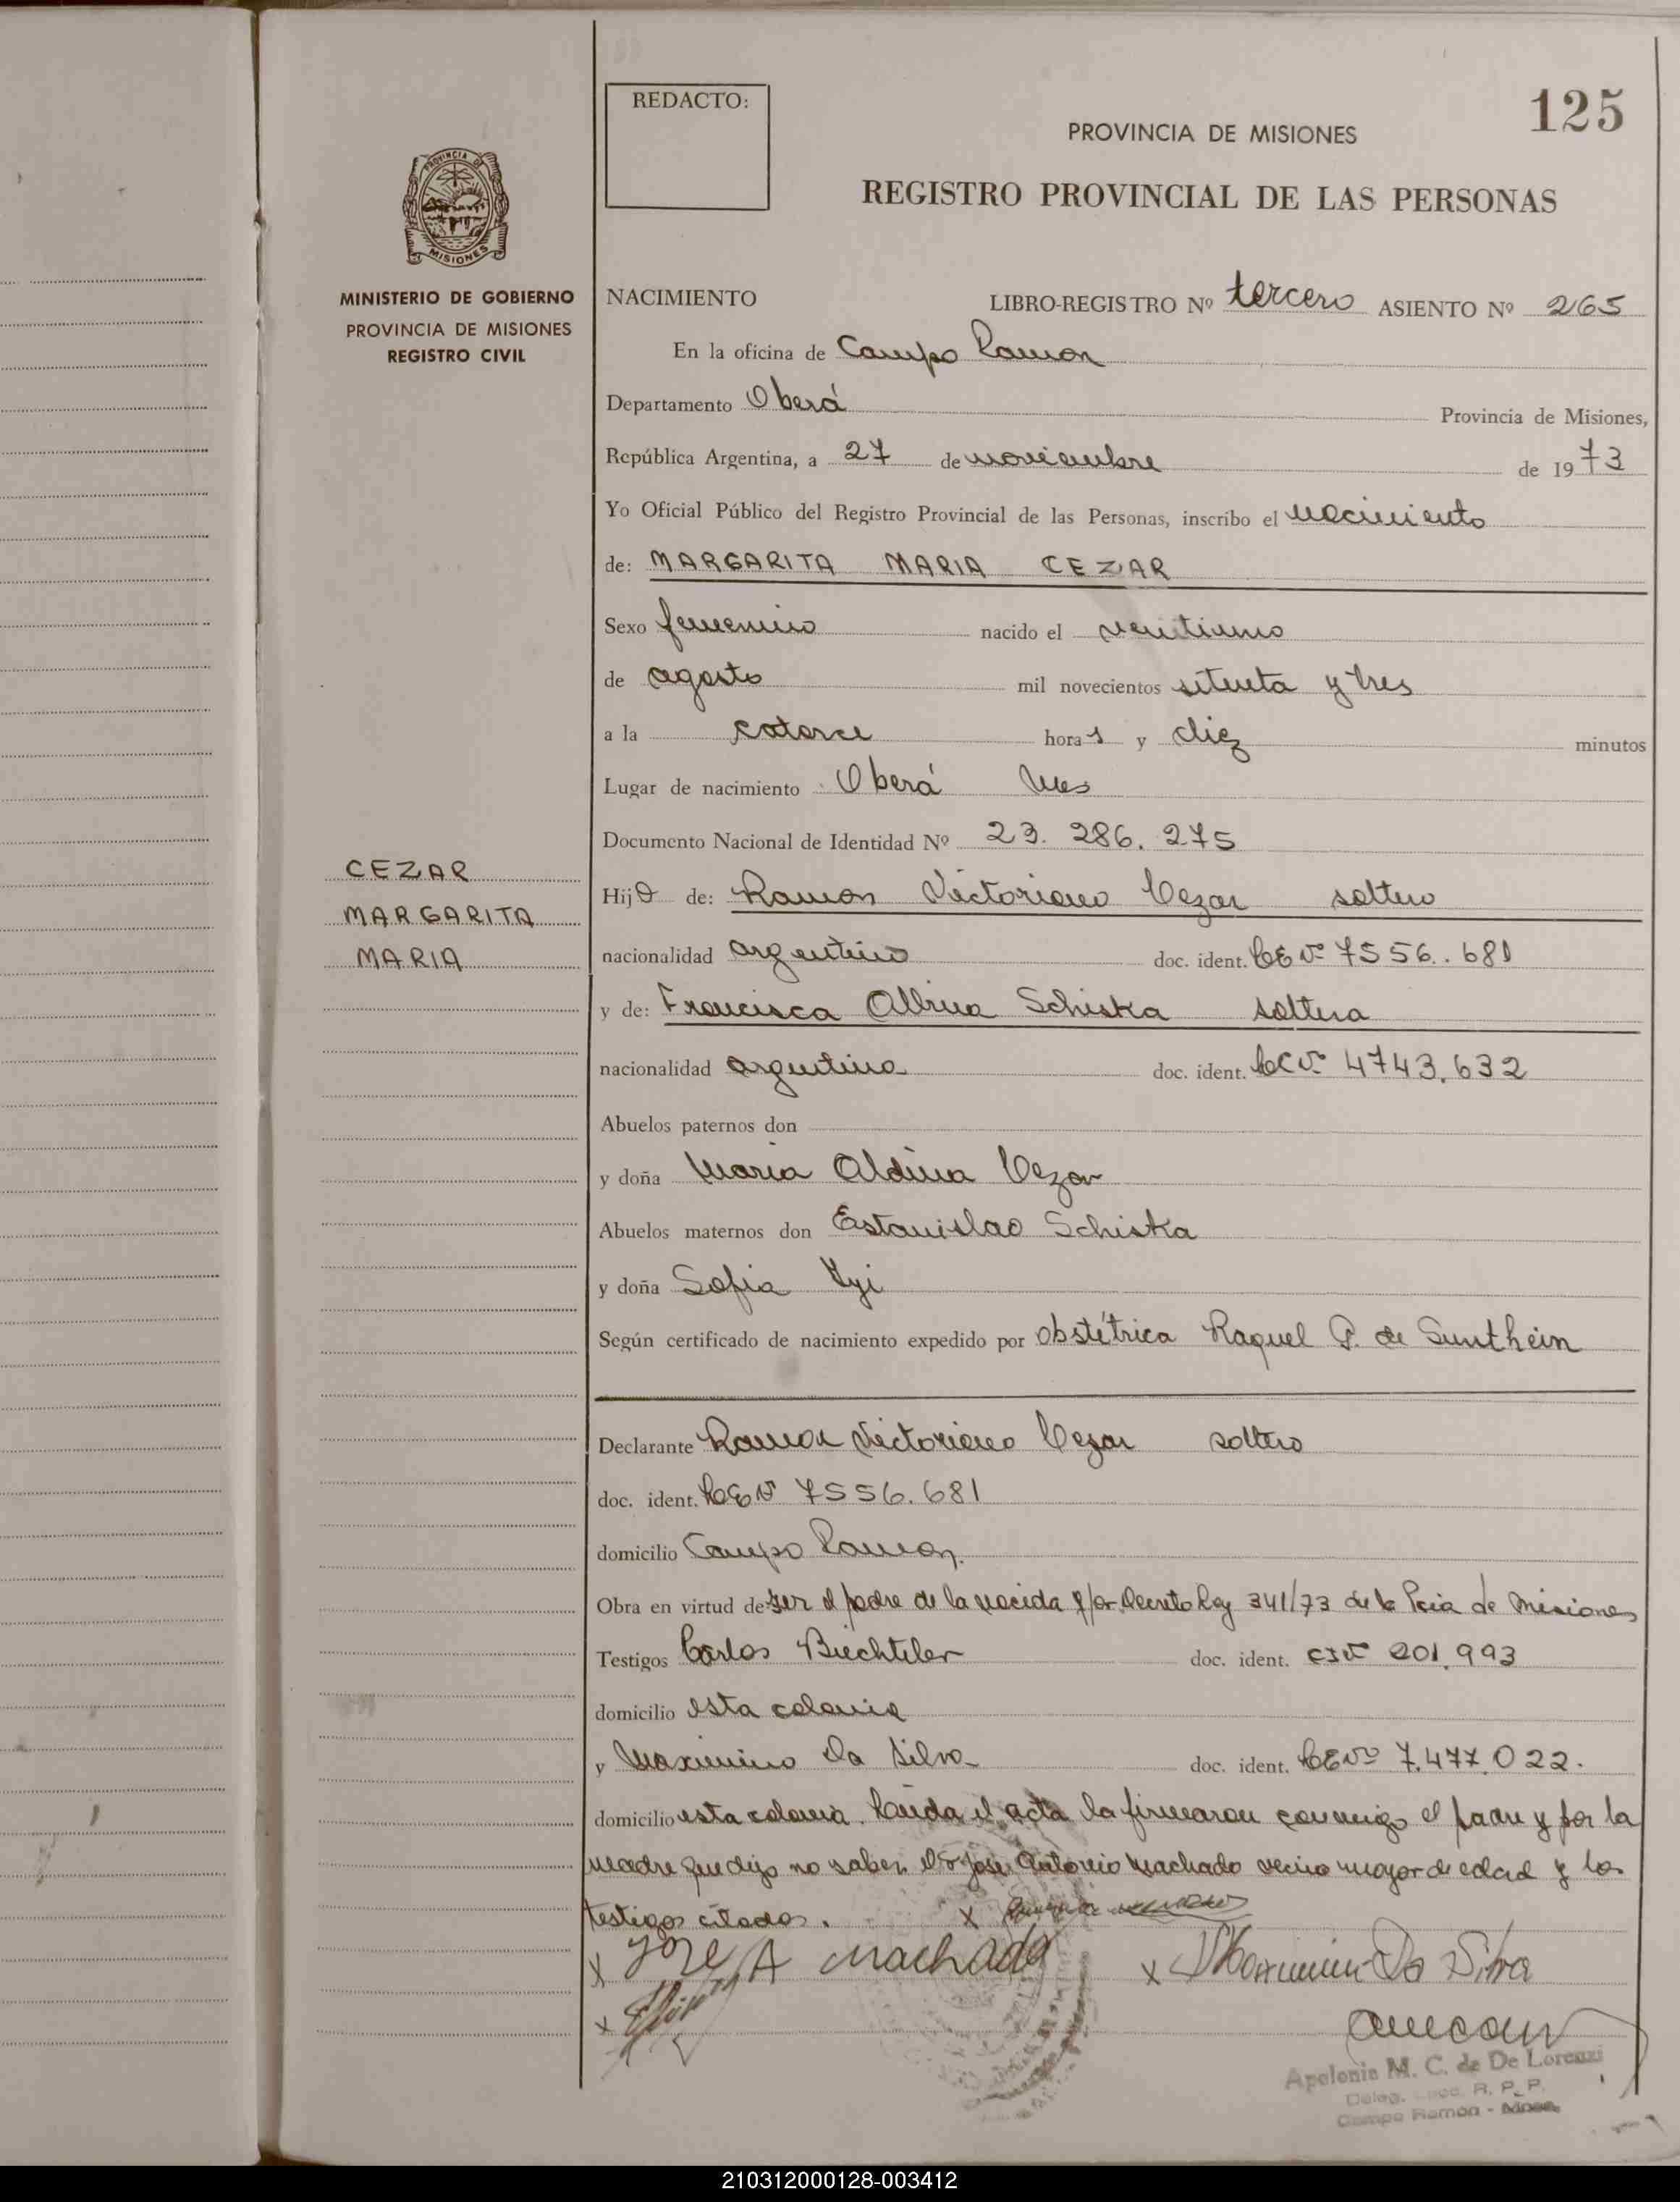 REDACTO:
125
PROVINCIA DE MISIONES
REGISTRO PROVINCIAL DE LAS PERSONAS
PROVINCIA DE
MISIONES
MINISTERIO DE GOBIERNO
PROVINCIA DE MISIONES
REGISTRO CIVIL
CEZAR
MARGARITA
MARIA
NACIMIENTO LIBRO-REGISTRO Nº tercero ASIENTO Nº 265
En la oficina de Campo Ramon
Departamento Oberá Provincia de Misiones,
República Argentina, a 27 de noviembre de 1973
Yo Oficial Público del Registro Provincial de las Personas, inscribo el nacimiento
de: MARGARITA MARIA CEZAR
Sexo femenino nacido el
de agosto mil novecientos setenta y tres
a la catorce horas y diez minutos
Lugar de nacimiento Oberá Mes
Documento Nacional de Identidad Nº 23.286.275
Hija de: Ramon Victoriano Cezar soltero
nacionalidad argentino doc. ident. LE Nº 7556.681
y de: Francisca Albina Schiska soltera
nacionalidad argentina doc. ident. LC Nº 4743.632
Abuelos paternos don
y doña Maria Aldina Cezar
Abuelos maternos don Estanislao Schiska
y doña Sofia
Según certificado de nacimiento expedido por obstétrica Raquel G. de Sunthein
Declarante Ramon Victoriano Cezar soltero
doc. ident. LE Nº 7556.681
domicilio Campo Ramon.
Obra en virtud de ser el padre de la nacida y por Decreto Ley 341/73 de la Pcia de Misiones
Testigos Carlos Biechteler doc. ident. CI Nº 201.993
domicilio esta colonia
y Maximino Da Silva doc. ident. LE Nº 7.477.022.
domicilio esta colonia. Leida el acta la firmaron conmigo el padre y por la
madre que dijo no saber el Sr Jose Antonio Machado vecino mayor de edad y los
testigos citados. X
X Jose A Machado X Maximino Da Silva
X
Apolonia M. C. de De Lorenzi
Deleg. R. P. P.
Campo Ramon - Mnes.
210312000128-003412